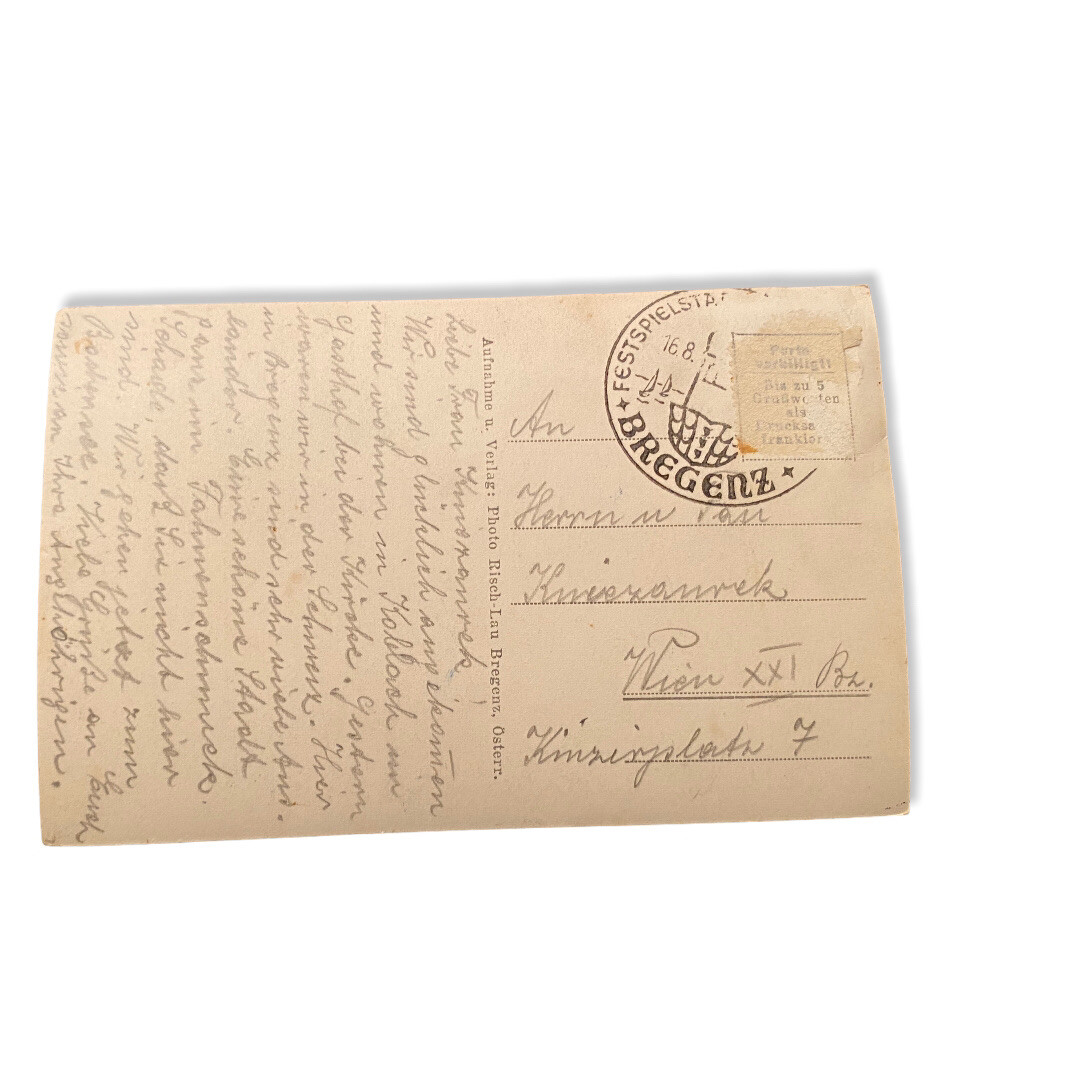 FESTSPIELSTA
16.8.
BREGENZ
Porto
verbilligt!
Bis zu 5
Grußworten
als
Drucksa
frankier
An
Herrn u
Kniezaurek
Wien XXI Bz.
Kinzerplatz 7
Aufnahme u. Verlag: Photo Risch-Lau Bregenz, Österr.
Liebe Frau Kniezaurek!
Wir sind glücklich angekom̅en
und wohnen in Koblach im
Gasthof bei der Kirche. Gestern
waren wir in der Schweiz. Hier
in Bregenz sind sehr viele Aus-
länder. Eine schöne Stadt
ganz im Fahnenschmuck.
Schade, dass Sie nicht hier
sind. Wir gehen jetzt zum
Bodensee. Viele Grüße an Euch
sowie an Ihre Angehörigen.